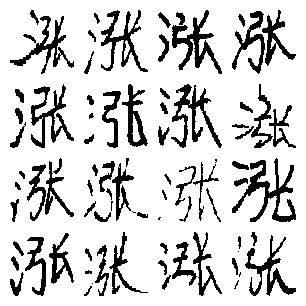 涨涨涨涨
涨涨涨涨
涨涨涨涨
涨涨涨涨